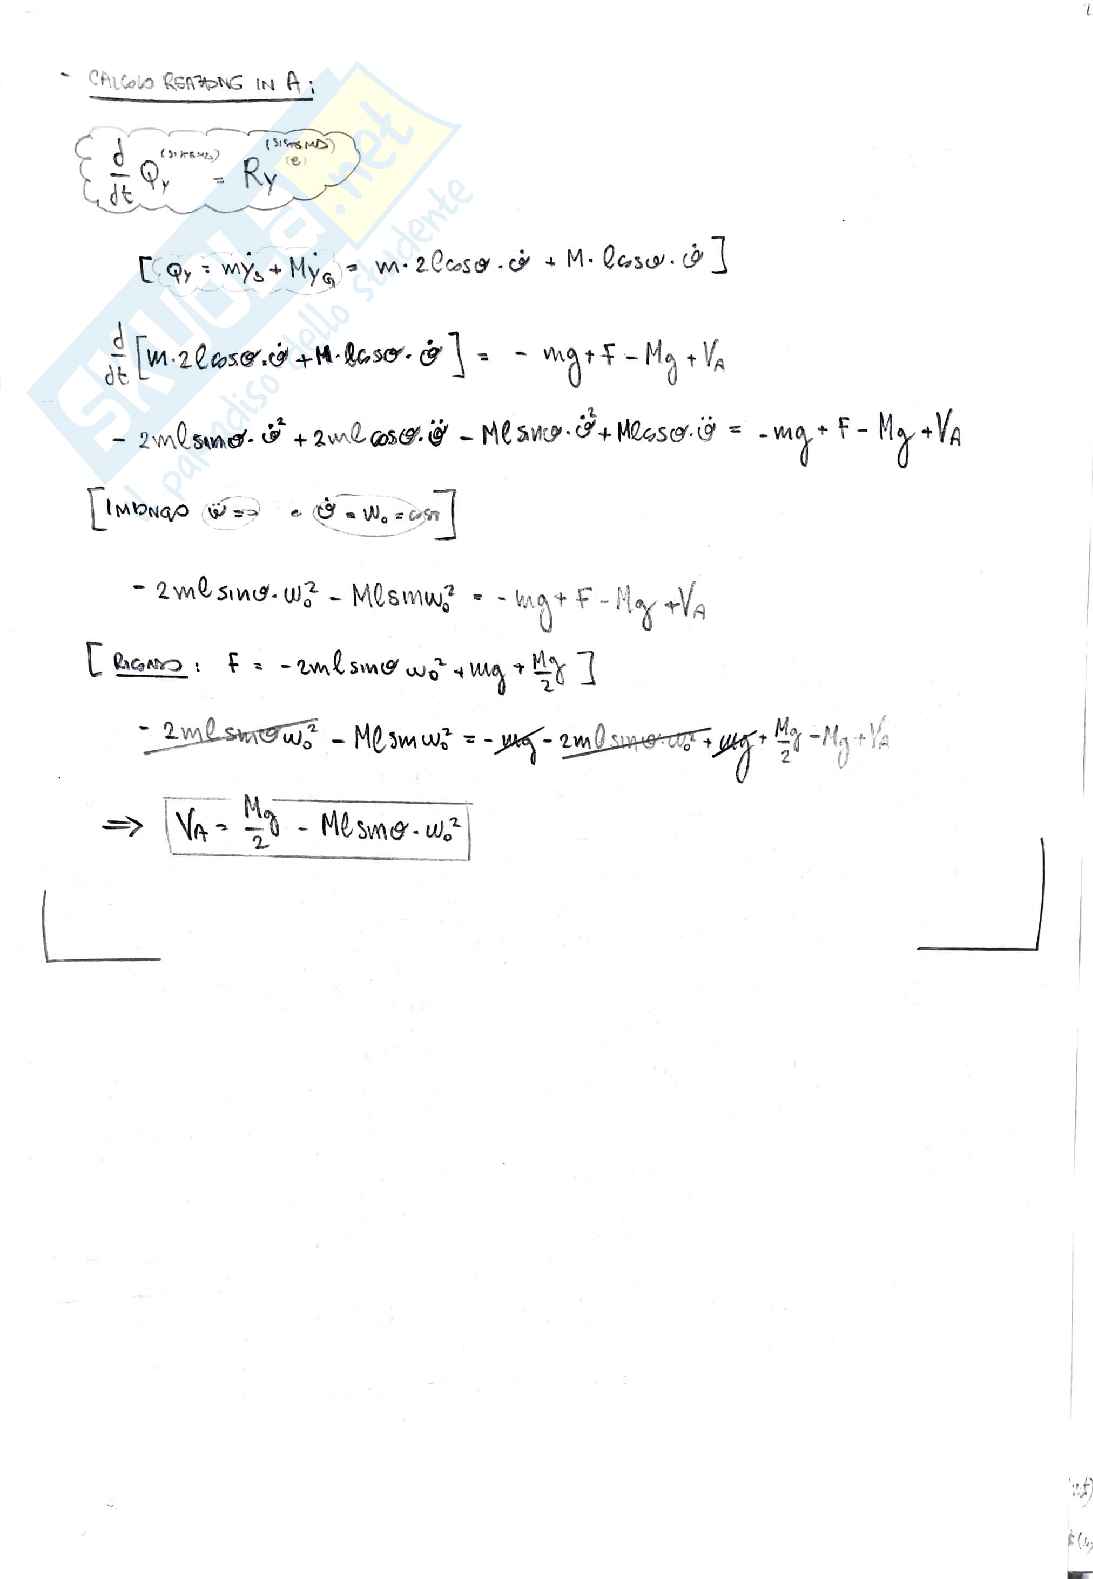 - CALCOLO REAZIONE IN A:
d/dt Q_y^(SISTEMA) = R_y^(e) (SISTEMA)
[Q_y = mẏ_S + Mẏ_G = m·2lcosθ·θ̇ + M·lcosθ·θ̇]
d/dt [m·2lcosθ·θ̇ + M·lcosθ·θ̇] = - mg + F - Mg + V_A
- 2mlsinθ·θ̇² + 2mlcosθ·θ̈ - Mlsinθ·θ̇² + Mlcosθ·θ̈ = - mg + F - Mg + V_A
[IMPONGO θ̇ = ω₀ = cost]
- 2mlsinθ·ω₀² - Mlsinω₀² = - mg + F - Mg + V_A
[F = - 2mlsinθω₀² + mg + Mg/2]
- 2mlsinθω₀² - Mlsinω₀² = - mg - 2mlsinθ·ω₀² + mg + Mg/2 - Mg + V_A
⇒ V_A = Mg/2 - Mlsinθ·ω₀²
SKUOLA.net
il paradiso dello studente